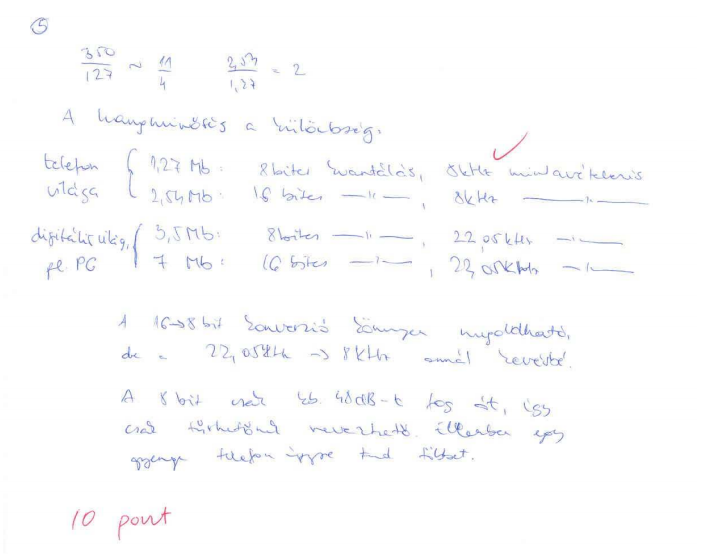 5
350/127 ~ 11/4    2,53/1,27 = 2
A hangminőség a különbség.
telefon világa { 1,27 Mb: 8 bites kvantálás, 8kHz mintavételezés
2,54 Mb: 16 bites —"—, 8kHz —"—
digitális világ, pl. PC { 3,5 Mb: 8 bites —"—, 22,05 kHz —"—
7 Mb: 16 bites —"—, 22,05 kHz —"—
A 16→8 bit konverzió könnyen megoldható,
de a 22,05kHz → 8kHz annál kevésbé.
A 8 bit csak kb. 48dB-t fog át, így
csak tűrhetőnek nevezhető. egy
gyenge telefon így is tud többet.
10 pont